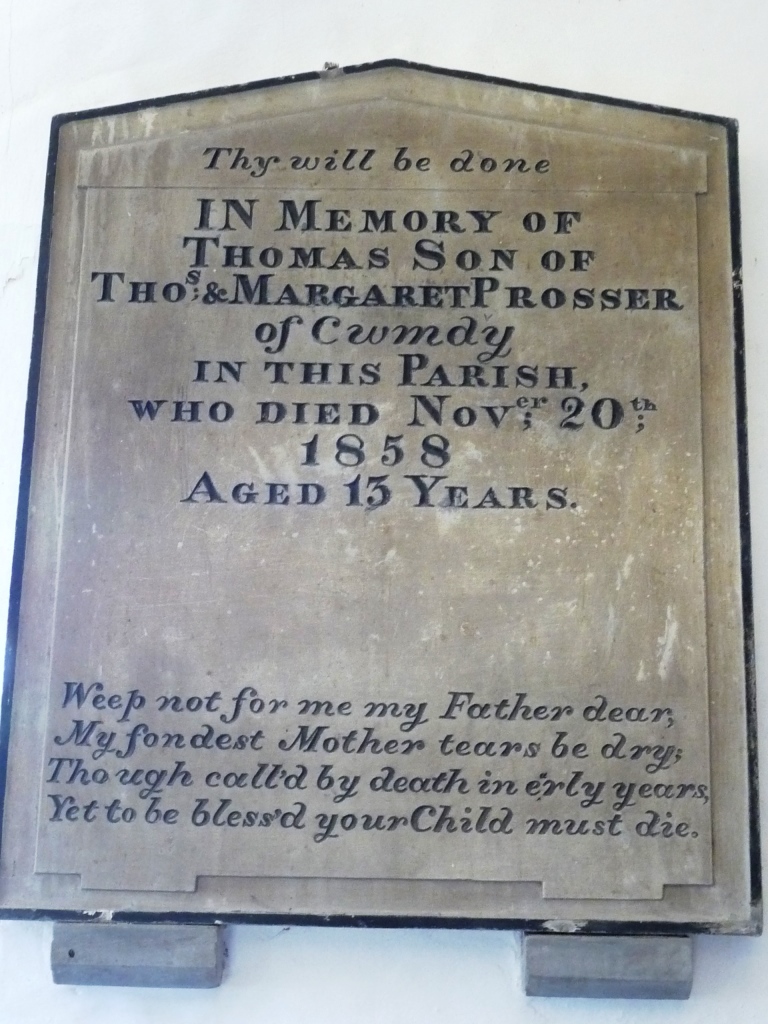 Thy will be done
IN MEMORY OF
THOMAS SON OF
THOS; & MARGARET PROSSER
of Cwmdy
IN THIS PARISH,
WHO DIED NOVer; 20th;
1858
AGED 13 YEARS.
Weep not for me my Father dear,
My fondest Mother tears be dry;
Though call'd by death in e'rly years,
Yet to be bless'd your Child must die.